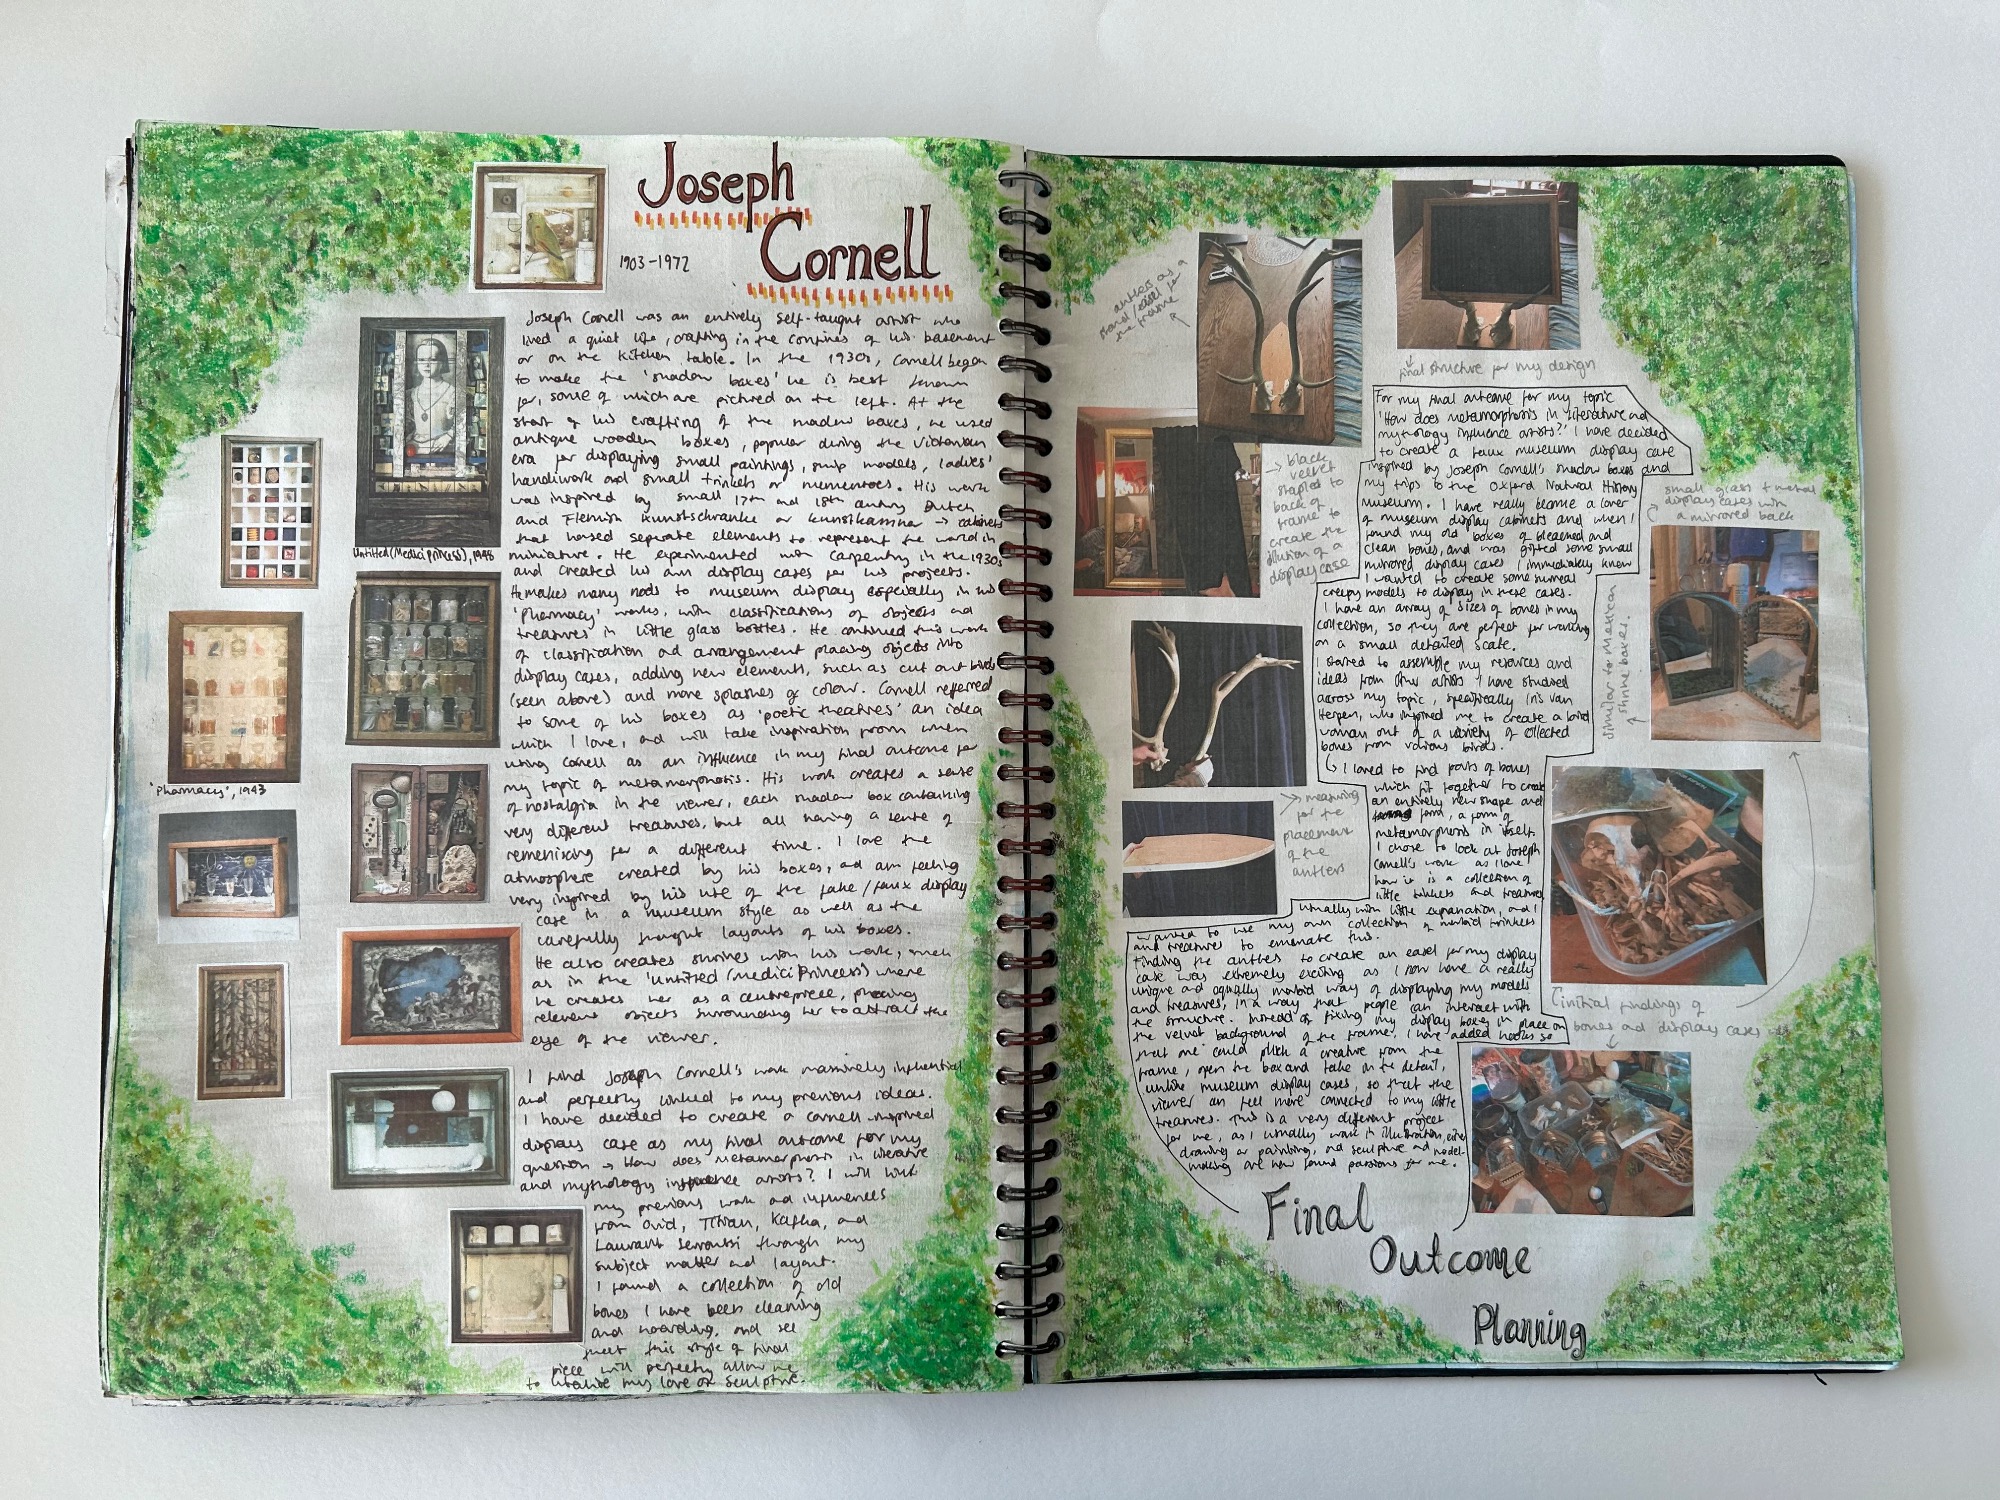 Joseph
Cornell
1903-1972
Joseph Cornell was an entirely self-taught artist who
lived a quiet life, crafting in the confines of his basement
or on the kitchen table. In the 1930s, Cornell began
to make the 'shadow boxes' he is best known
for, some of which are pictured on the left. At the
start of his crafting of the shadow boxes, he used
antique wooden boxes, popular during the Victorian
era for displaying small paintings, ship models, ladies'
handiwork and small trinkets or mementoes. His work
was inspired by small 17th and 18th century Dutch
and Flemish Kunstschranke or kunstkammer → cabinets
that housed separate elements to represent the world in
miniature. He experimented with carpentry in the 1930s
and created his own display cases for his projects.
He makes many nods to museum display especially in his
'Pharmacy' works, with classifications of objects and
treasures in little glass bottles. He continued this work
of classification and arrangement placing objects into
display cases, adding new elements, such as cut out birds
(seen above) and more splashes of colour. Cornell referred
to some of his boxes as 'poetic theatres' an idea
which I love, and will take inspiration from when
using Cornell as an influence in my final outcome for
my topic of metamorphosis. His work creates a sense
of nostalgia in the viewer, each shadow box containing
very different treasures, but all having a sense of
remenising for a different time. I love the
atmosphere created by his boxes, and am feeling
very inspired by his use of the fake/faux display
case in a museum style as well as the
carefully thought layouts of his boxes.
He also creates shrines with his work, such
as in the 'Untitled (Medici Princess) where
he creates her as a centrepiece, placing
relevent objects surrounding her to attract the
eye of the viewer.
I find Joseph Cornell's work massively influential
and perfectly linked to my previous ideas.
I have decided to create a Cornell-inspired
display case as my final outcome for my
question → How does metamorphosis in literature
and mythology influence artists? I will link
my previous work and influences
from Ovid, Titian, Kafka, and
Laurant through my
subject matter and layout.
I found a collection of old
bones I have been cleaning
and hoarding, and see
that this style of final
piece will perfectly allow me
to utilise my love of sculpture.
Untitled (Medici Princess), 1948
'Pharmacy', 1943
antlers as a
stand/easel for
the frame
final structure for my design
→ black
velvet
stapled to
back of
frame to
create the
illusion of a
display case
→ measuring
for the
placement
of the
antlers
For my final outcome for my topic
'How does metamorphosis in literature and
mythology influence artists?' I have decided
to create a faux museum display case
inspired by Joseph Cornell's shadow boxes and
my trips to the Oxford Natural History
Museum. I have really become a lover
of museum display cabinets and when I
found my old boxes of bleached and
clean bones, and was gifted some small
mirrored display cases I immediately knew
I wanted to create some surreal
creepy models to display in these cases.
I have an array of sizes of bones in my
collection, so they are perfect for working
on a small detailed scale.
I started to assemble my resources and
ideas from other artists I have studied
across my topic, specifically Iris van
Herpen, who inspired me to create a bird
woman out of a variety of collected
bones from various birds.
↳ I loved to find parts of bones
which fit together to create
an entirely new shape and
form, a form of
metamorphosis in itself.
I chose to look at Joseph
Cornell's work as I love
how it is a collection of
little trinkets and treasures
usually with little explanation, and I
wanted to use my own collection of morbid trinkets
and treasures to emanate this.
Finding the antlers to create an easel for my display
case was extremely exciting as I now have a really
unique and equally morbid way of displaying my models
and treasures, in a way that people can interact with
the structure. Instead of fixing my display boxes in place on
the velvet background of the frame, I have added hooks so
that one could pluck a creature from the
frame, open the box and take in the detail,
unlike museum display cases, so that the
viewer can feel more connected to my little
treasures. This is a very different project
for me, as I usually work in illustration, either
drawing or painting, and sculpture and model-
making are new found passions for me.
small glass + metal
display cases with
a mirrored back
similar to Mexican
shrine boxes.
initial findings of
bones and display cases
Final
Outcome
Planning